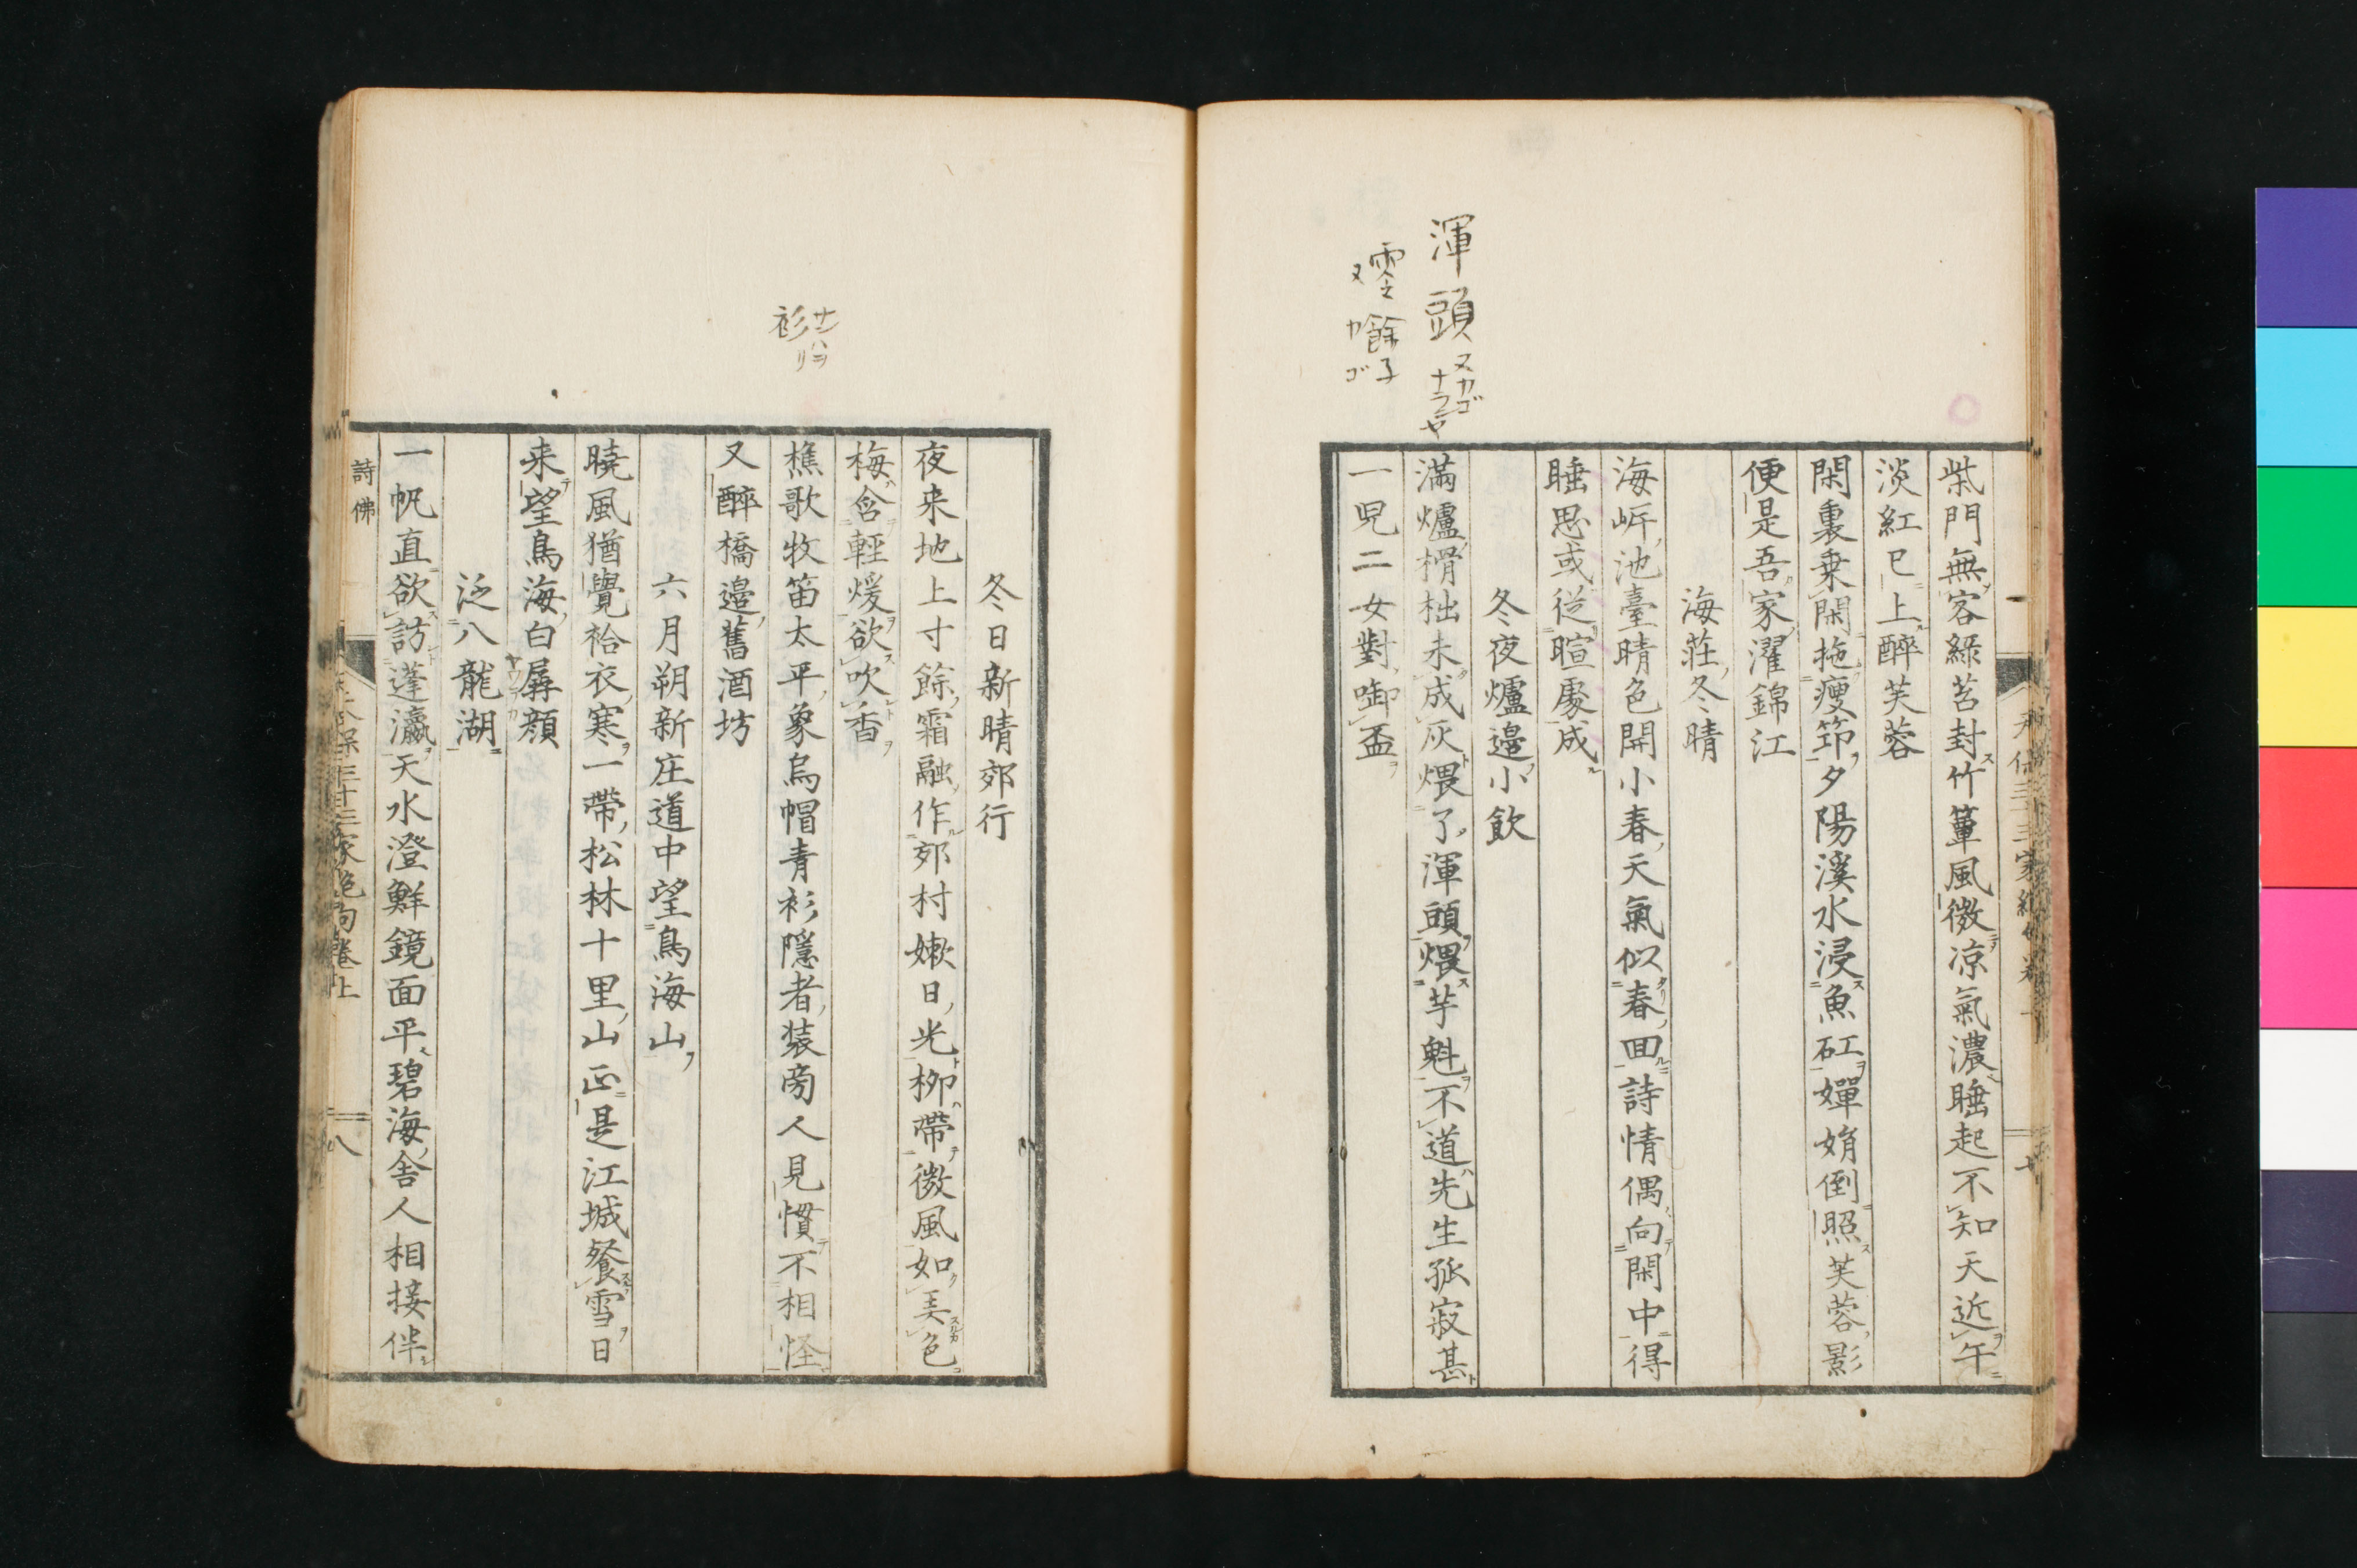 渾頭
ヌカゴ
零餘子
ヌカゴ
柴門無客緑苔封竹簟風微凉氣濃睡起不知天近午
淡紅已上醉芙蓉
閑裏乗閑拖瘦筇夕陽溪水浸魚矼嬋娟倒照芙蓉影
便是吾家濯錦江
海莊冬晴
海岸池臺晴色開小春天氣似春回詩情偶向閑中得
睡思或従暄處成
冬夜爐邉小飲
滿爐榾柮未成灰煨了渾頭煨芋魁不道先生孤寂甚
一児二女對啣盃
衫
冬日新晴郊行
夜来地上寸餘霜融作郊村嫩日光柳帶微風如美色
梅含輕煖欲吹香
樵歌牧笛太平象烏帽青衫隱者装旁人見慣不相怪
又醉橋邉舊酒坊
六月朔新庄道中望鳥海山
曉風猶覺袷衣寒一帶松林十里山正是江城餐雪日
来望鳥海白孱顔
泛八龍湖
一帆直欲訪蓬瀛天水澄鮮鏡面平碧海舎人相接伴
詩佛
八